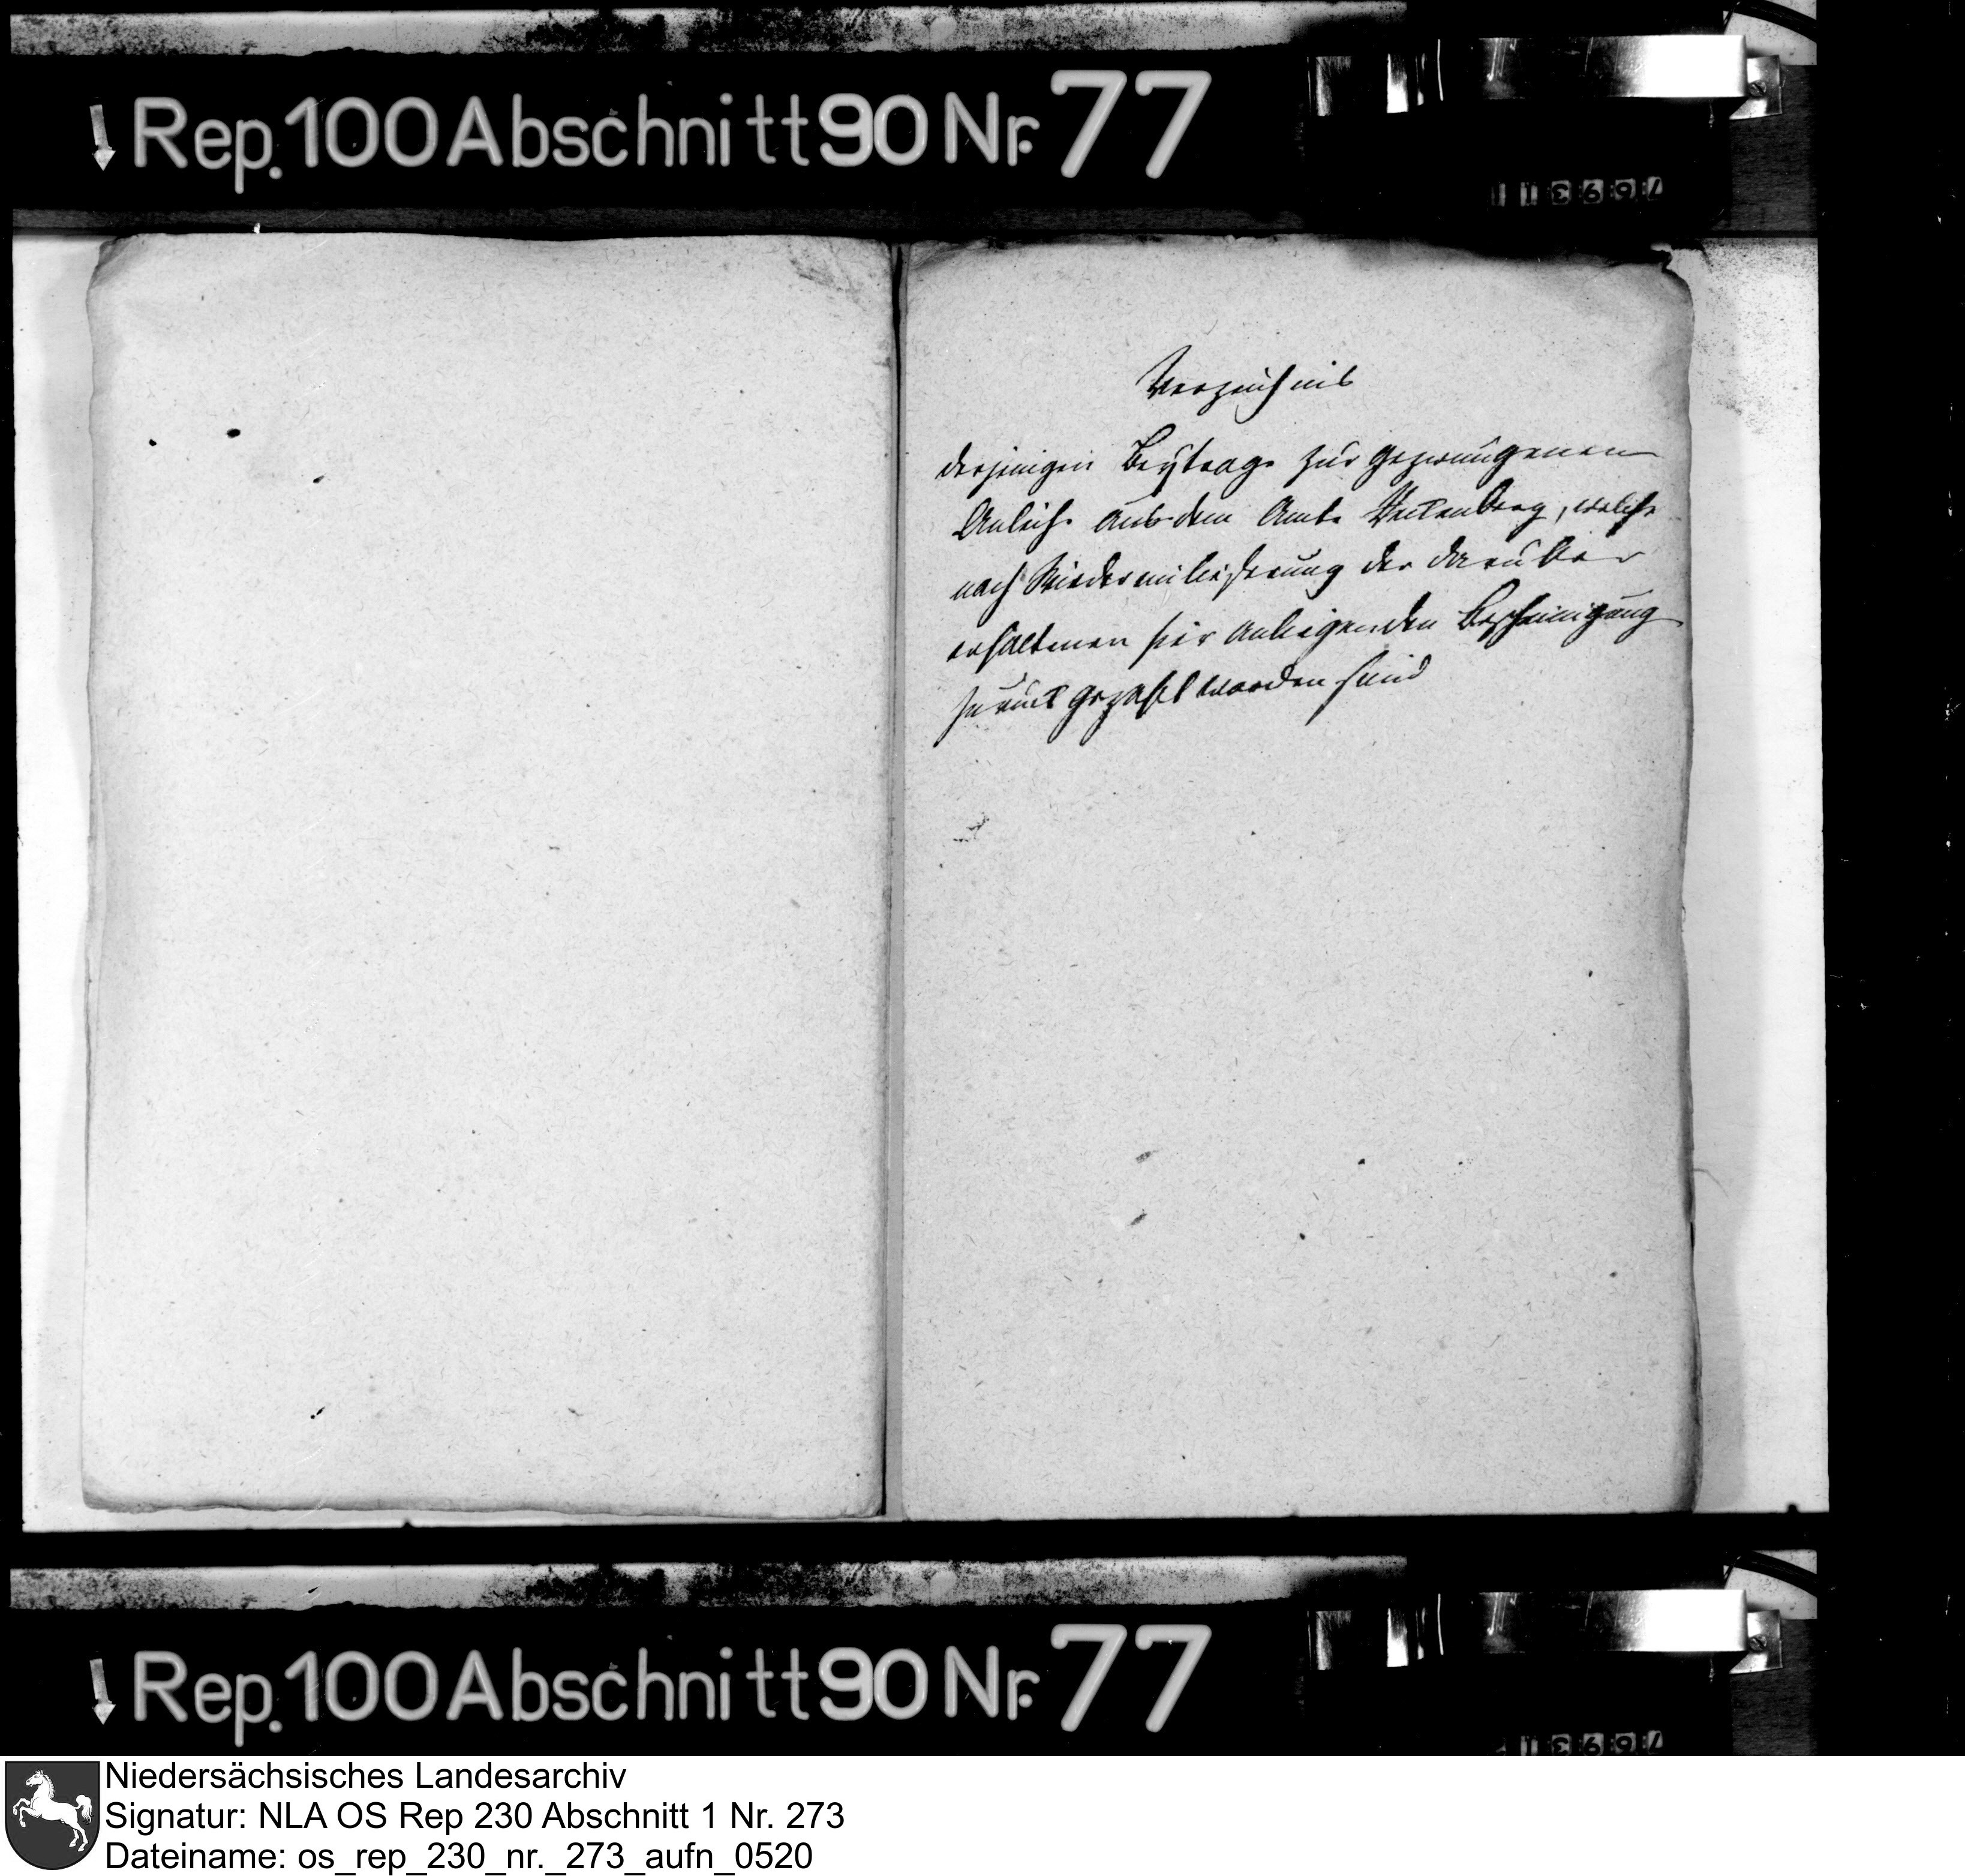 Rep. 100 Abschnitt 90 Nr. 77
Verzeichnis
derjenigen Beytrage zur gezwungenen
Anleihe aus dem Amte Reckenberg, welche
nach Wiedereinlieferung der darüber
erhaltenen hier anliegenden Bescheinigung
zurück gezahlt worden sind
Rep. 100 Abschnitt 90 Nr. 77
Niedersächsisches Landesarchiv
Signatur: NLA OS Rep 230 Abschnitt 1 Nr. 273
Dateiname: os_rep_230_nr._273_aufn_0520